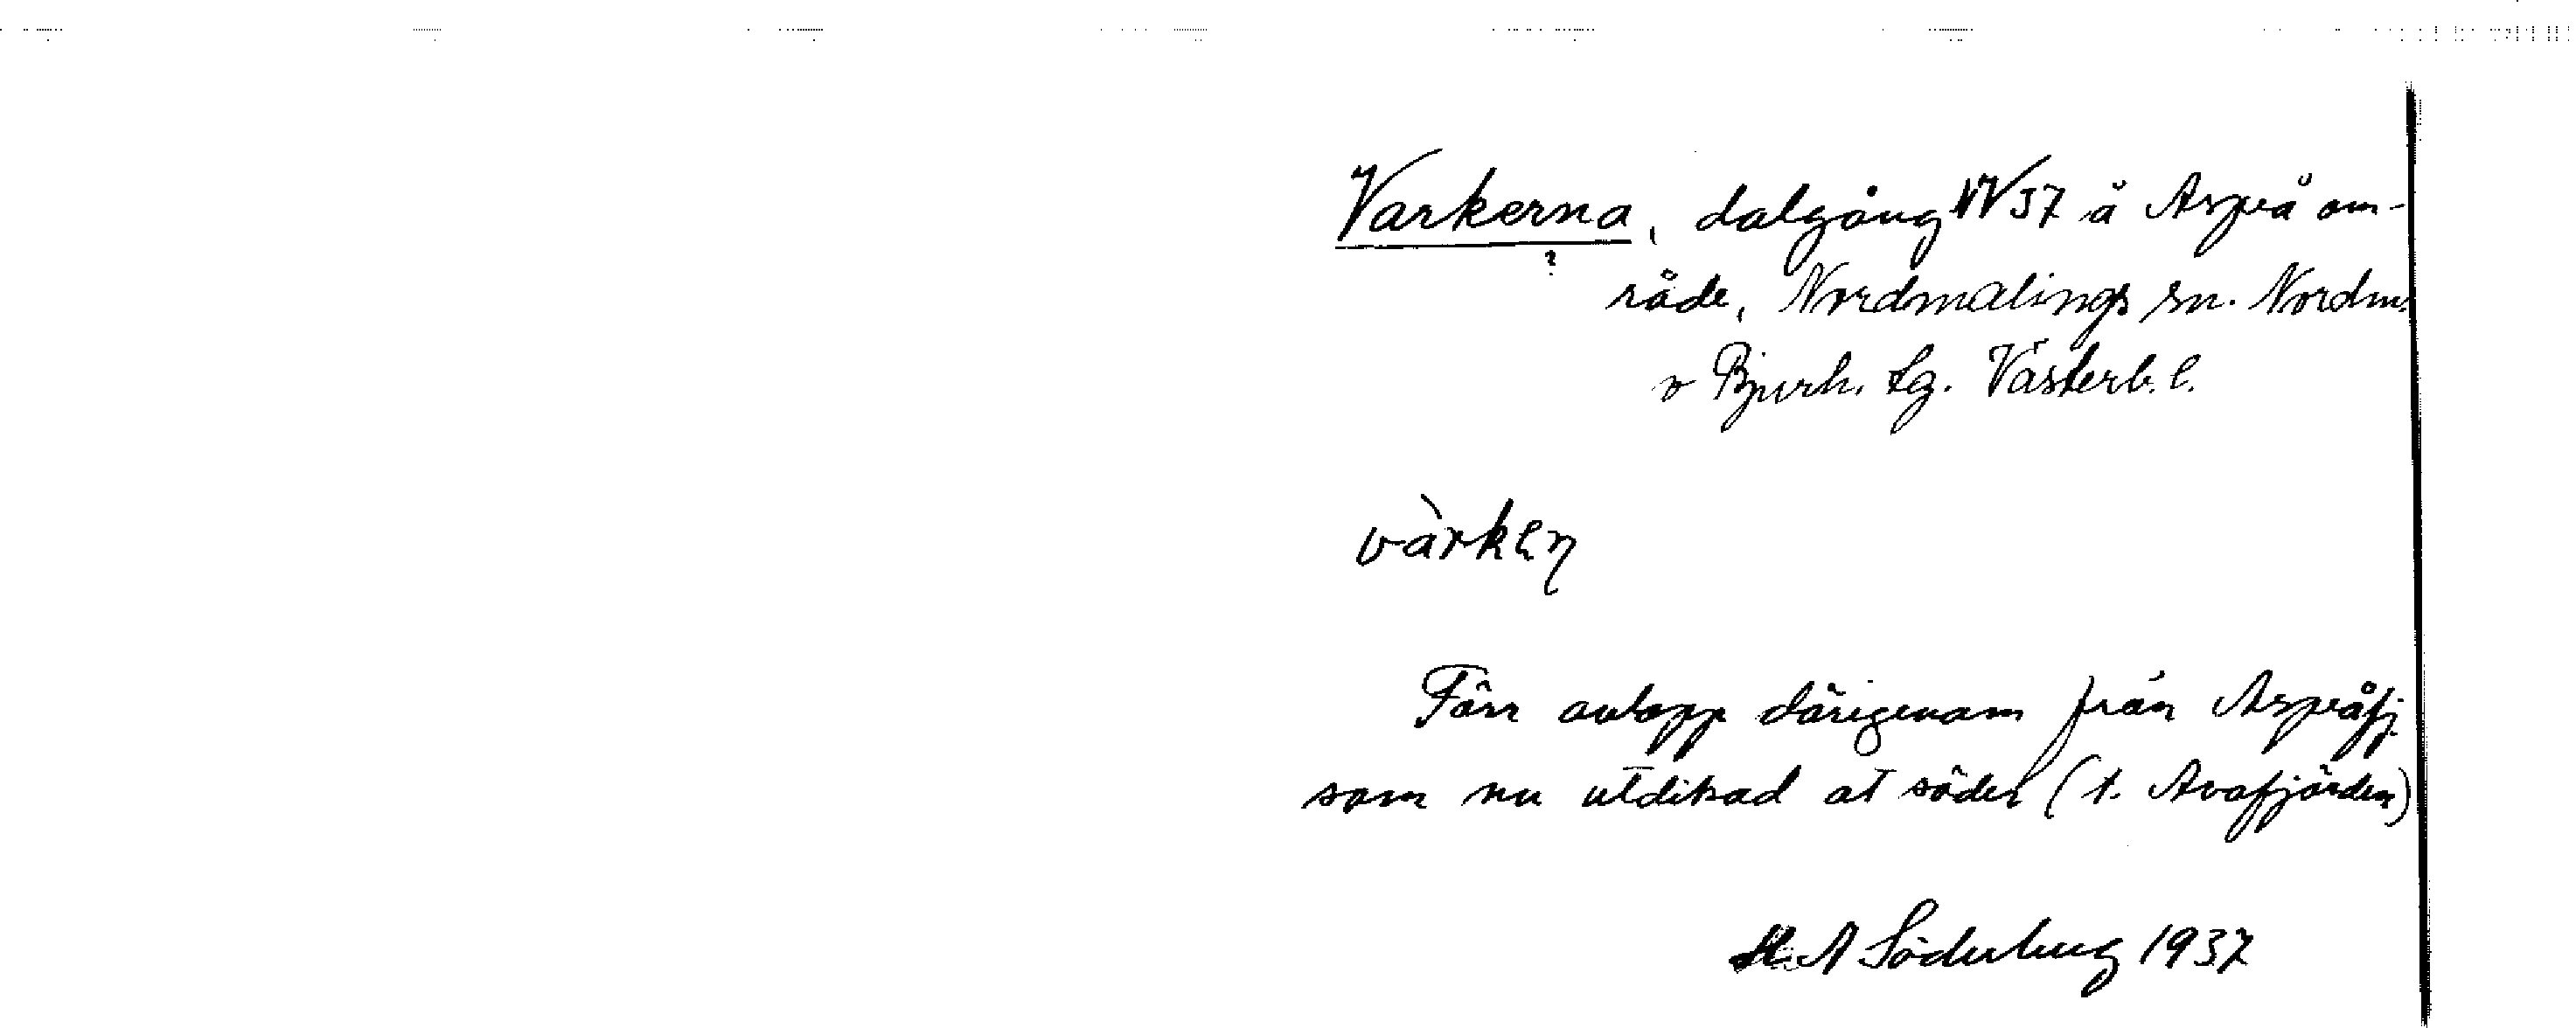 Varkerna, dalgång IV 37 å Aspeå om-
?
råde, Nordmalings sn. Nordm.
o Bjurh. tg. Västerb. l.
vàrkEn
Förr avlopp därigenom från Aspeåfj.
som nu utdikad åt söder (t. Avafjärden)
H. A Söderberg 1937